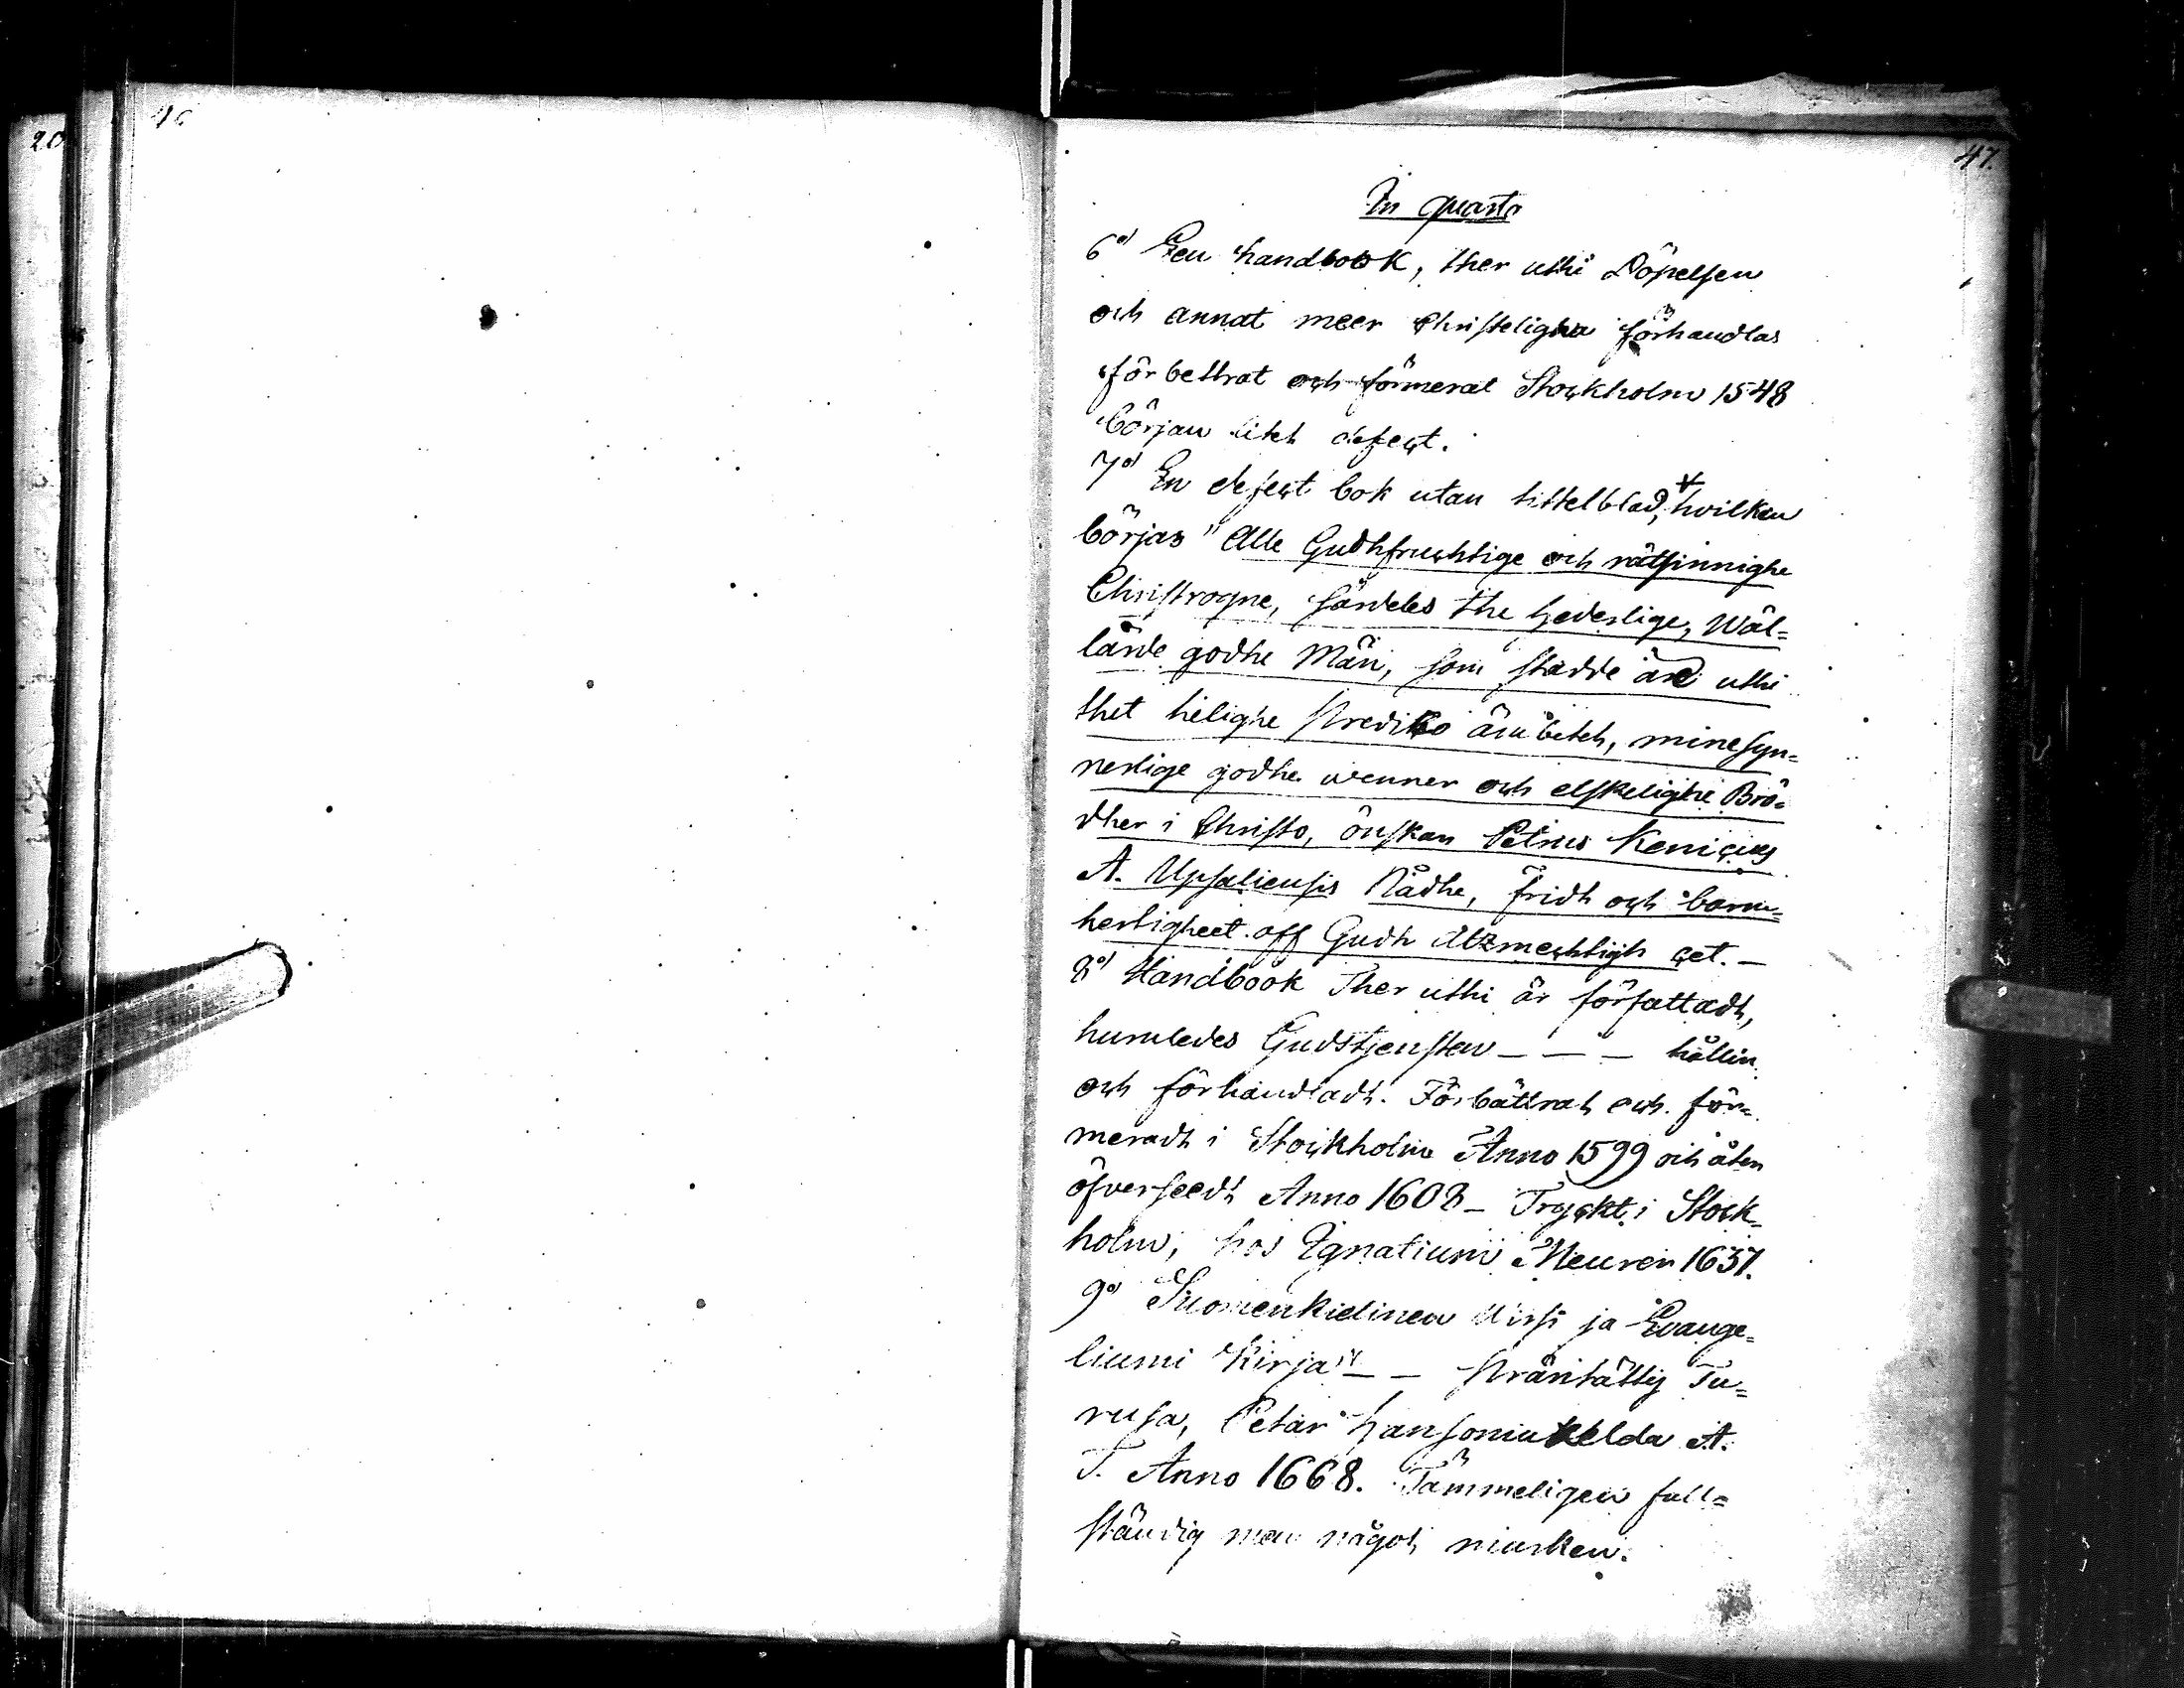 20
46
47.
In quarto
6o) Een handbook, ther uthi Döpelsen
och annat meer Christeligha förhandlas
förbettrat och förmerat Stockholm 1548
början litet defect.
7o) En defect bok utan tittelblad, hvilken
börjas "Alle Gudhfruchtige och rätsinnighe
Christrogne, särdeles the hederlige, Wäl=
lärde godhe Män, som stadde äre uthi
thet helighe Prediko ämbetet, mine syn=
nerlige godhe wenner och elskelighe Brö=
dher i Christo, önskar Petrus Kenicius
A. Upsaliensis Nådhe, fridh och barm=
hertigheet aff Gudh Alzmechtigh cet. —
8o) Handbook Ther uthi är författadt,
huruledes Gudstjensten — — — hållin
och förhandladt. Förbättrat och för=
meradt i Stockholm Anno 1599 och åter
öfverseedt Anno 1608 — Tryckt i Stock=
holm, hos Ignatium Meurer 1637.
9o) Suomenkielinen Wirsi ja Evange=
liumi Kirja" — — Präntätty Tu=
rusa, Petar Hansonialdа A.
T. Anno 1668. Tämmeligen full=
ständig men något nusken.